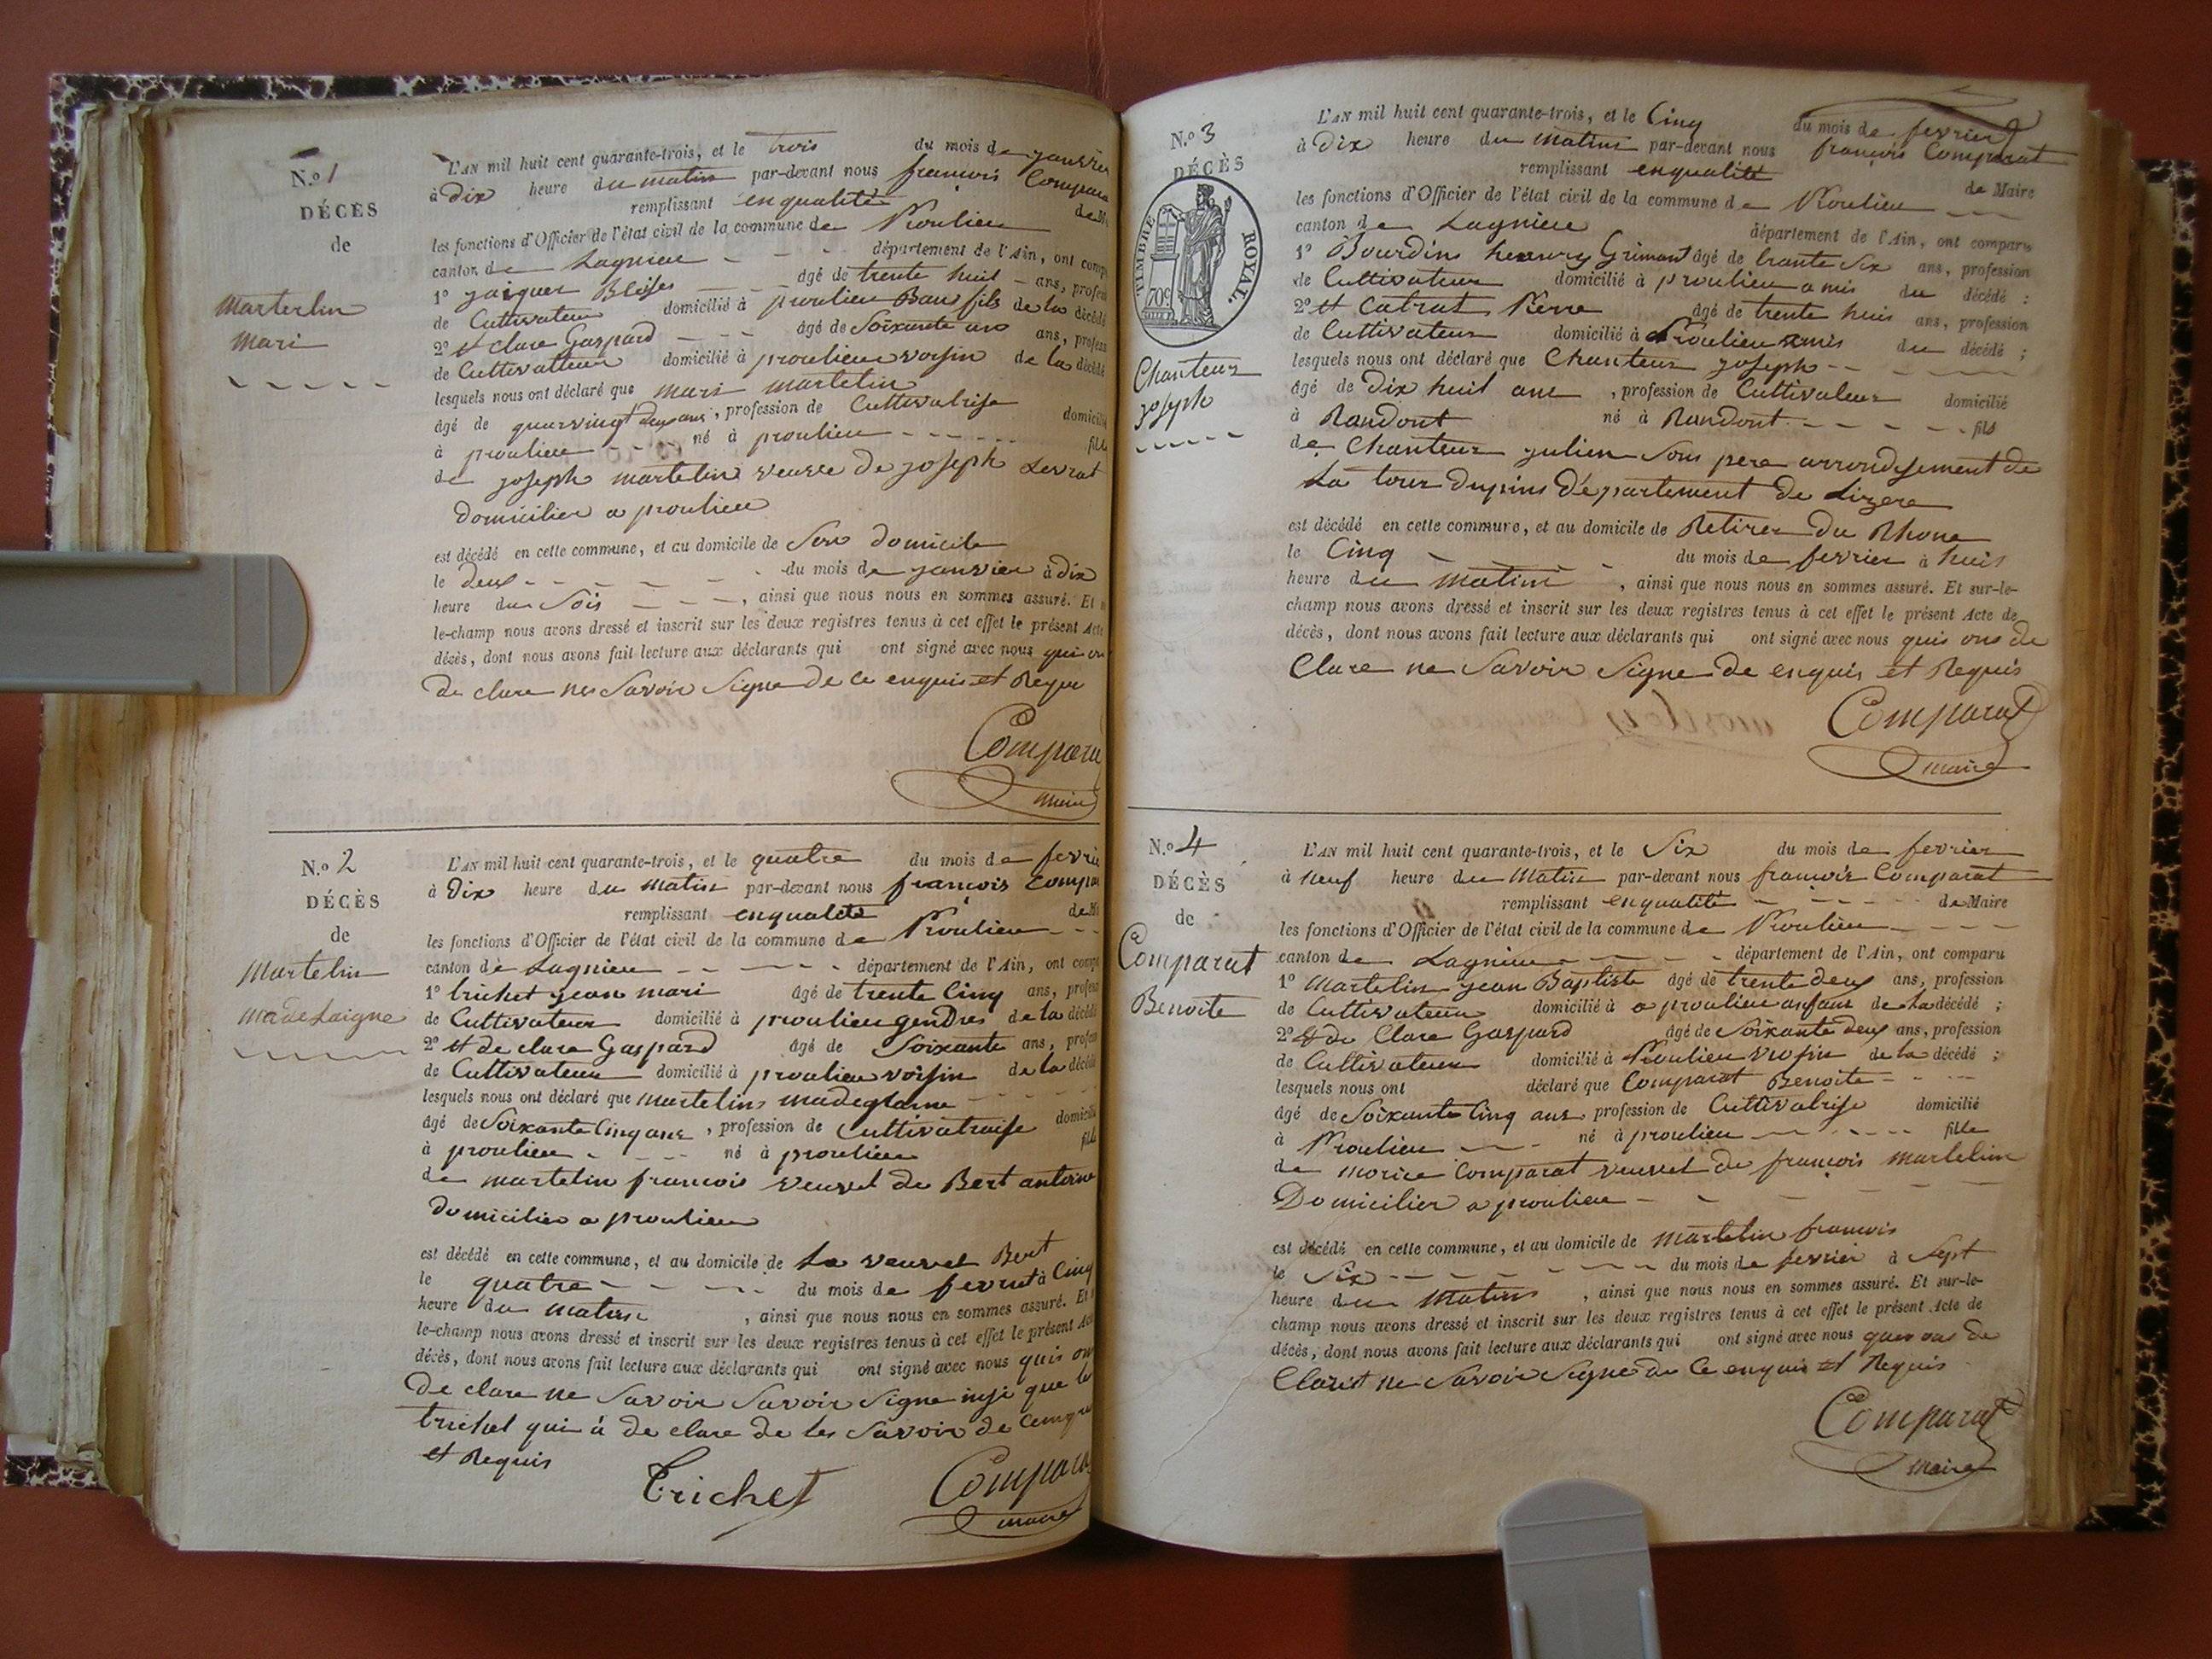 N.o 1
DÉCÈS
de
Marterlin
Mari
L'AN mil huit cent quarante-trois, et le trois du mois de janvier
à Dix heure du matin par-devant nous françois Compara
remplissant enqualité de M
les fonctions d'Officier de l'état civil de la commune de Proulieu
canton de Lagnieu département de l'Ain, ont comp
1o jaiquer Bleises âgé de trente huit ans, profess
de Cultivateur domicilié à proulieu Bau fils de la décédé
2o et clare Gaspard âgé de Soixante ans ans, profess
de Cultivatteur domicilié à proulieu voisin de la décédé
lesquels nous ont déclaré que mari martelin
âgé de quarvingt deux ans, profession de Cultivatrise domicilié
à proulieu né à proulieu fille
de joseph martelin veuve de joseph Levrat
domicilier a proulieu
est décédé en cette commune, et au domicile de Son domicile
le deux du mois de janvier à dix
heure du Soir, ainsi que nous nous en sommes assuré. Et
le-champ nous avons dressé et inscrit sur les deux registres tenus à cet effet le présent Acte
décès, dont nous avons fait lecture aux déclarants qui ont signé avec nous qui on
de clare nes Savoir Signe de ce enquis et Requi
Compara
maire
N.o 2
DÉCÈS
de
Martelin
madelaigne
L'AN mil huit cent quarante-trois, et le quatre du mois de fevrie
à Dix heure du matin par-devant nous françois Compar
remplissant enqualité de M
les fonctions d'Officier de l'état civil de la commune de Proulieu
canton de Lagnieu département de l'Ain, ont comp
1o trichet jean mari âgé de trente Cinq ans, profess
de Cultivateur domicilié à proulieu gendres de la décédé
2o et de clare Gaspard âgé de Soixante ans, profess
de Cultivateur domicilié à proulieu voisin de la décédé
lesquels nous ont déclaré que martelins madeglaine
âgé de Soixante Cinq ans, profession de Cultivatraise domicilié
à proulieu né à proulieu fille
de martelin francois veuvet de Bert antoine
domicilier a proulieu
est décédé en cette commune, et au domicile de La veuvet Bert
le quatre du mois de fevriet à Cinq
heure du matin, ainsi que nous nous en sommes assuré. Et
le-champ nous avons dressé et inscrit sur les deux registres tenus à cet effet le présent Acte
décès, dont nous avons fait lecture aux déclarants qui ont signé avec nous quis on
De clare ne Savoir Savoir Signe insi que le
trichet qui à de clare de les Savoir de
et Requis
Trichet Compara
maire
N.o 3
DÉCÈS
TIMBRE ROYAL.
70c
Chanteur
joseph
L'AN mil huit cent quarante-trois, et le Cinq du mois de fevrier
à Dix heure du matin par-devant nous françois Comparat
remplissant enqualité de Maire
les fonctions d'Officier de l'état civil de la commune de Proulieu
canton de Lagnieu département de l'Ain, ont comparu
1o Bourdin henry Grimant âgé de trante Six ans, profession
de Cultivateur domicilié à proulieu amis du décédé ;
2o et Catrat Pierre âgé de trente huis ans, profession
de Cultivateur domicilié à Proulieu amis du décédé ;
lesquels nous ont déclaré que Chanteur joseph
âgé de Dix huit ans, profession de Cultivateur domicilié
à Randont né à Randont fils
de Chanteur julien Sons pere arrondisement de
La tour dupins département de Lizere
est décédé en cette commune, et au domicile de Retirer du Rhone
le Cinq du mois de fevrier à huis
heure du matin, ainsi que nous nous en sommes assuré. Et sur-le-
champ nous avons dressé et inscrit sur les deux registres tenus à cet effet le présent Acte de
décès, dont nous avons fait lecture aux déclarants qui ont signé avec nous quis ons de
Clare ne Savoir Signe de enquis et Requis
Comparat
maire
N.o 4
DÉCÈS
de
Comparat
Benoite
L'AN mil huit cent quarante-trois, et le Six du mois de fevrier
à neuf heure du Matin par-devant nous françois Comparat
remplissant enqualité de Maire
les fonctions d'Officier de l'état civil de la commune de Proulieu
canton de Lagnieu département de l'Ain, ont comparu
1o Martelin jean Baptiste âgé de trente deux ans, profession
de Cultivateur domicilié à a proulieu anfant de la décédé ;
2o et de Clare Gaspard âgé de Soixante deux ans, profession
de Cultivateur domicilié à Proulieu vosin de la décédé ;
lesquels nous ont déclaré que Comparat Benoite
âgé de Soixante Cinq ans profession de Cultivatrise domicilié
à Proulieu né à proulieu fille
de morice Comparat veuvet de françois martelin
Domicilier a proulieu
est décédé en cette commune, et au domicile de martelin francois
le Six du mois de fevrier à Sept
heure du Matin, ainsi que nous nous en sommes assuré. Et sur-le-
champ nous avons dressé et inscrit sur les deux registres tenus à cet effet le présent Acte de
décès, dont nous avons fait lecture aux déclarants qui ont signé avec nous ques ons de
Claret ne Savoir Signe de Ce enquis et Requis
Comparat
maire